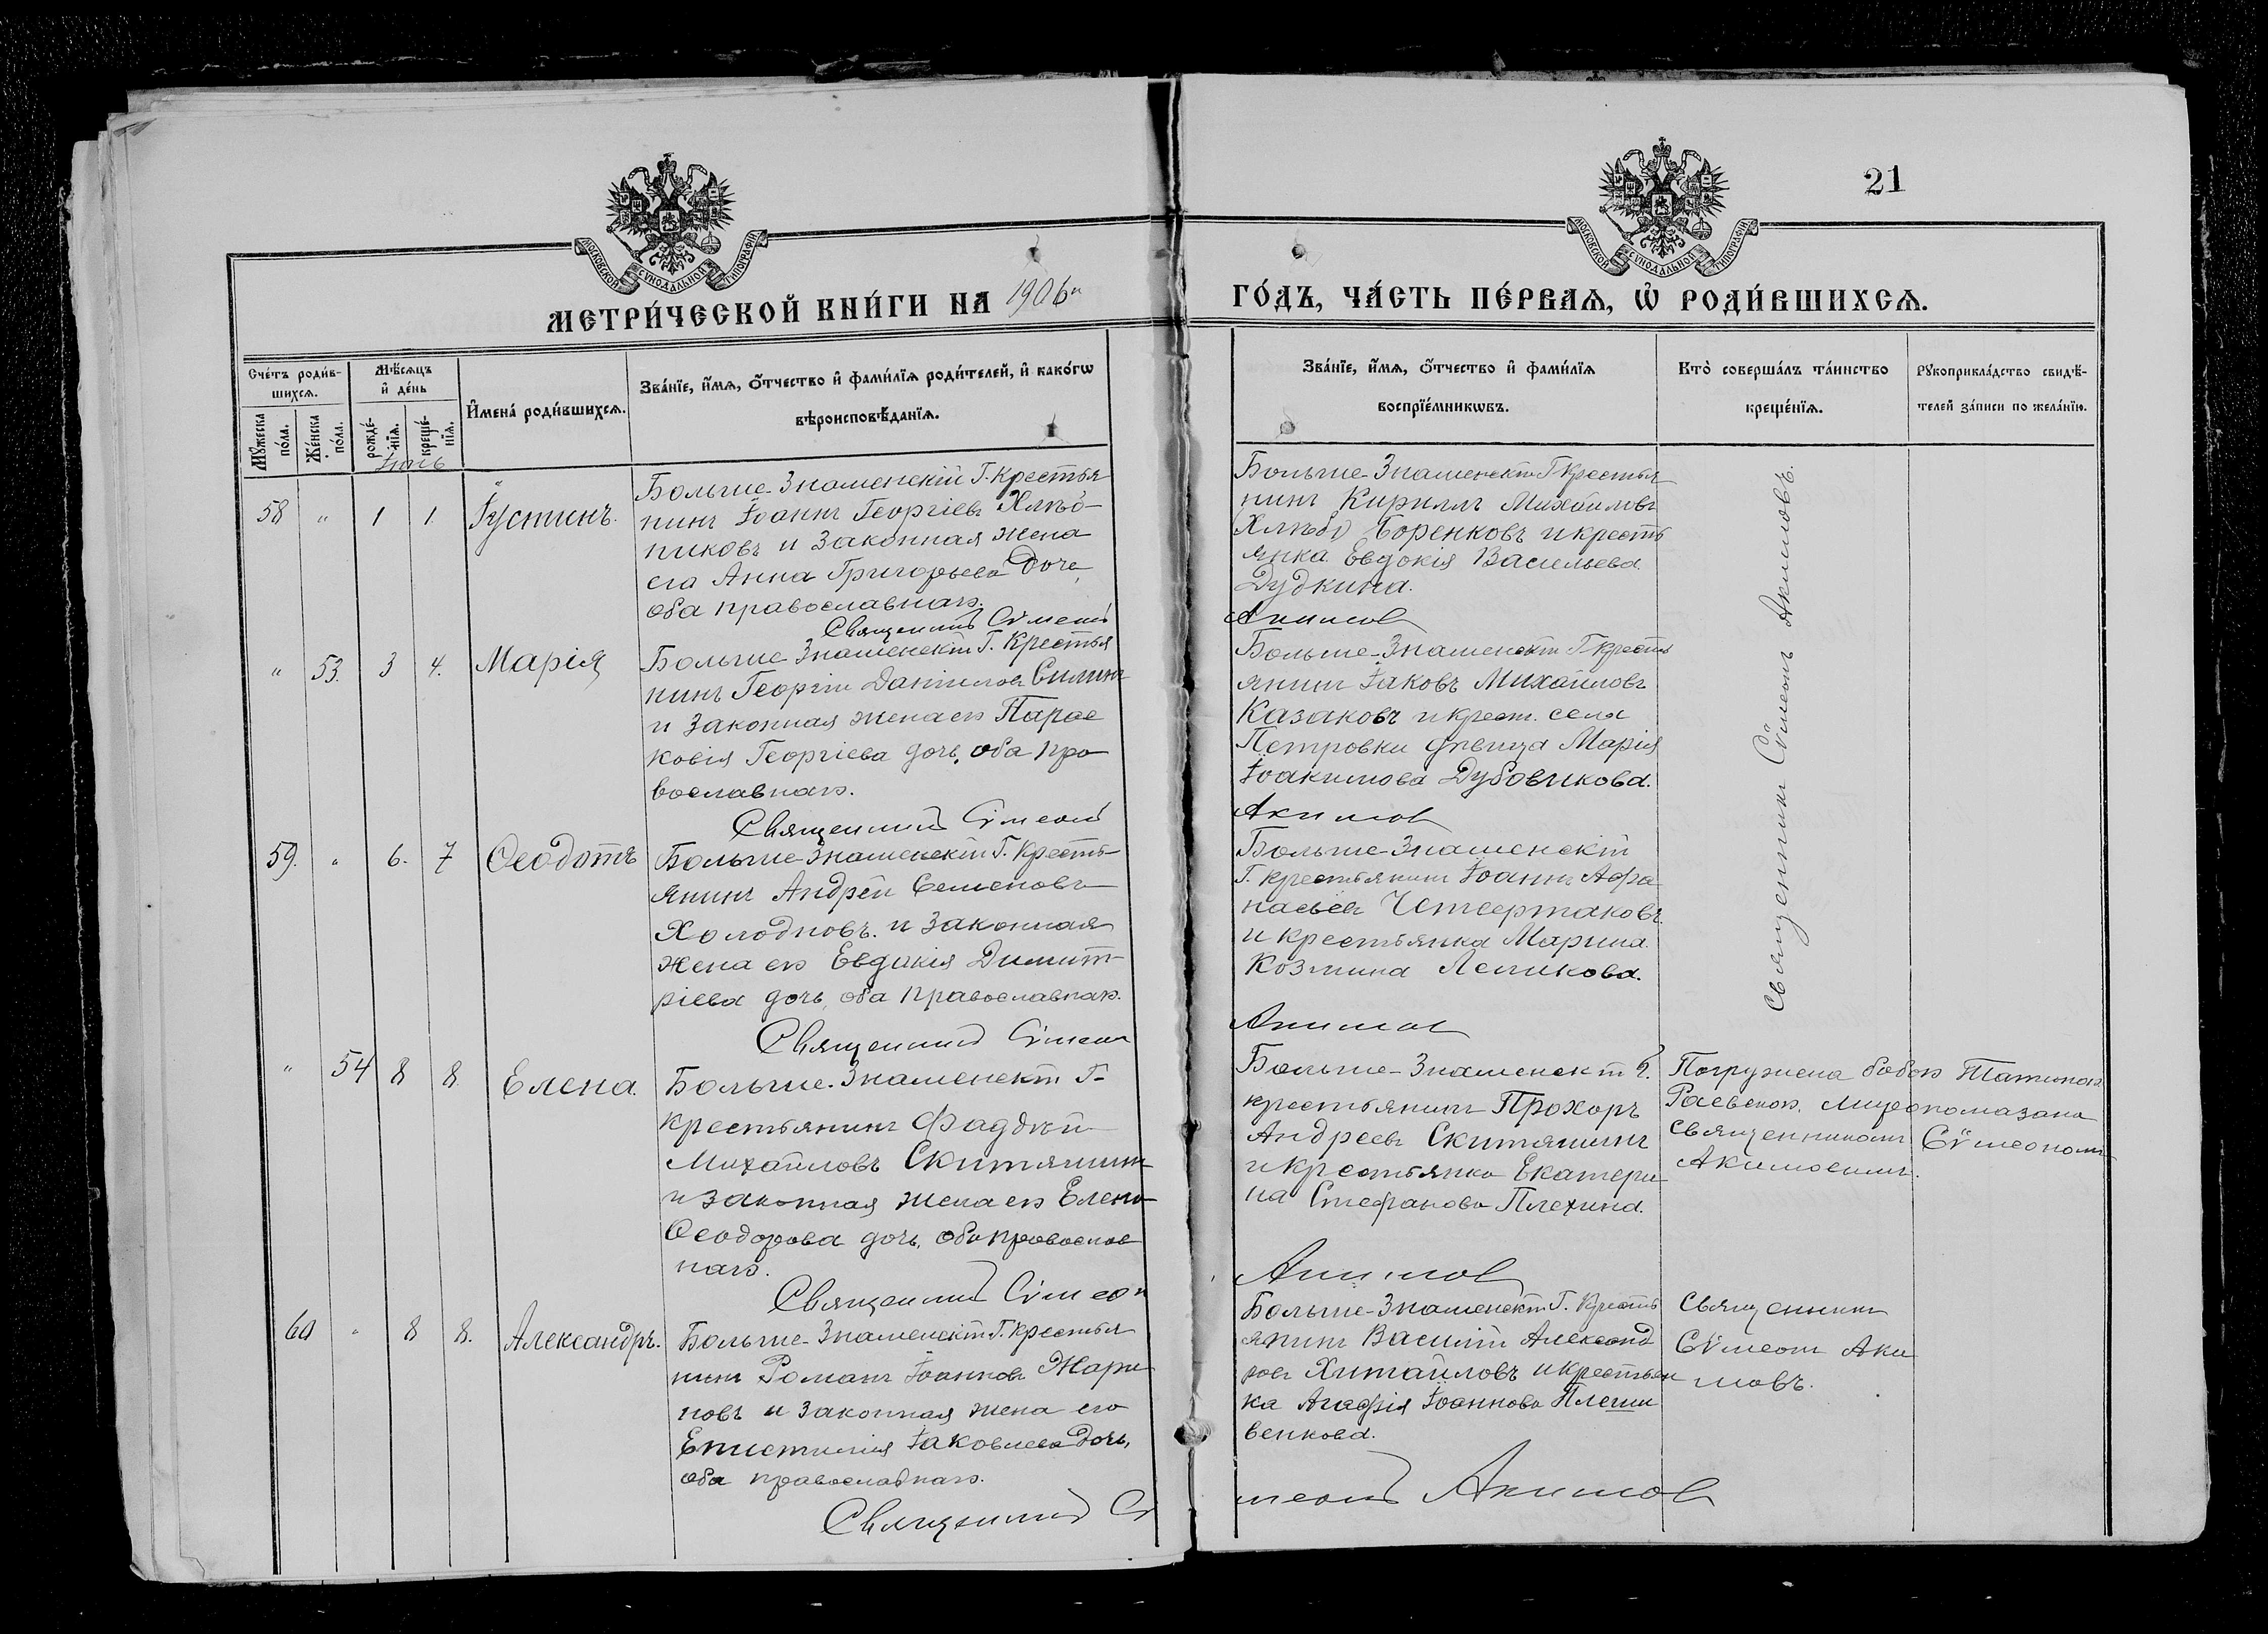 21
МОСКОВСКОЙ СѴНОДАЛЬНОЙ ТИПОГРАФІИ
МОСКОВСКОЙ СѴНОДАЛЬНОЙ ТИПОГРАФІИ
МЕТРИ́ЧЕСКОЙ КНИ́ГИ НА 1906й ГО́ДЪ, ЧА́СТЬ ПЕ́РВАѦ, Ѡ҆ РОДИ́ВШИХСѦ.
Сче́тъ роди́в-
шихсѧ.
Мꙋ́жеска
по́ла.
Же́нска
по́ла.
Мѣ́сѧцъ
и҆ де́нь
рожде́-
нїѧ.
креще́-
нїѧ.
И҆мена̀ роди́вшихсѧ.
Зва́нїе, и҆́мѧ, ѻ҆́тчество и҆ фами́лїѧ роди́телей, и҆ како́гѡ
вѣроисповѣ́данїѧ.
Зва́нїе, и҆́мѧ, ѻ҆́тчество и҆ фами́лїѧ
воспрїе́мникѡвъ.
Кто̀ соверша́лъ та́инство
креще́нїѧ.
Рꙋкоприкла́дство свидѣ́-
телей за́писи по жела́нїю.
Іюнь
58 " 1 1 Іустинъ.
Больше-Знаменскій Г. крестья
нинъ Іоаннъ Георгіевъ Хлѣб-
никовъ и законная жена
его Анна Григорьева дочь,
оба православнаго.
Священникъ Сѵмеонъ
Больше-Знаменскій Г. крестья
нинъ Кириллъ Михайловъ
Хлѣбо Боренковъ и кресть
янка Евдокія Васильева
Дудкина.
Акимовъ
Священникъ Сѵмеонъ Акимовъ.
" 53. 3 4. Марія
Больше Знаменскій Г. крестья
нинъ Георгій Даніиловъ Силинъ
и законная жена его Парас
ковія Георгіева дочь, оба пра
вославнаго.
Священникъ Сѵмеонъ
Больше-Знаменскій Г. кресть
янинъ Іаковъ Михайловъ
Казаковъ и крест. села
Петровки дѣвица Марія
Іоакимова Дубовикова.
Акимовъ
59. " 6. 7 Ѳеодотъ
Больше Знаменскій Г. кресть-
янинъ Андрей Семеновъ
Холодновъ и законная
жена его Евдокія Димит-
ріева дочь, оба православнаго.
Священникъ Сѵмеонъ
Больше-Знаменскій
Г. крестьянинъ Іоаннъ Афа
насьевъ Четвертаковъ
и крестьянка Марина
Козмина Лепикова.
Акимовъ
" 54 8 8. Елена.
Больше-Знаменскій Г.
крестьянинъ Фаддѣй
Михайловъ Скитяшинъ
и законная жена его Елена
Ѳеодорова дочь, оба православ
наго.
Священникъ Сѵмеон
Больше-Знаменскій Г.
крестьянинъ Прохоръ
Андреевъ Скитяшинъ
и крестьянка Екатери
на Стефанова Плехина.
Акимовъ
Погружена бабою Татіаною
Раевскою, мѵропомазана
священникомъ Сѵмеономъ
Акимовымъ.
60 " 8 8. Александръ.
Больше-Знаменскій Г. крестья
нинъ Романъ Іоанновъ Жари
новъ и законная жена его
Епистимія Іаковлева дочь,
оба православнаго.
Священникъ Сѵ
Больше-Знаменскій Г. кресть
янинъ Василій Александ
ровъ Хитайловъ и крестьян
ка Агафія Іоаннова Плеши
венкова.
меонъ Акимовъ
Священникъ
Сѵмеонъ Аки
мовъ.